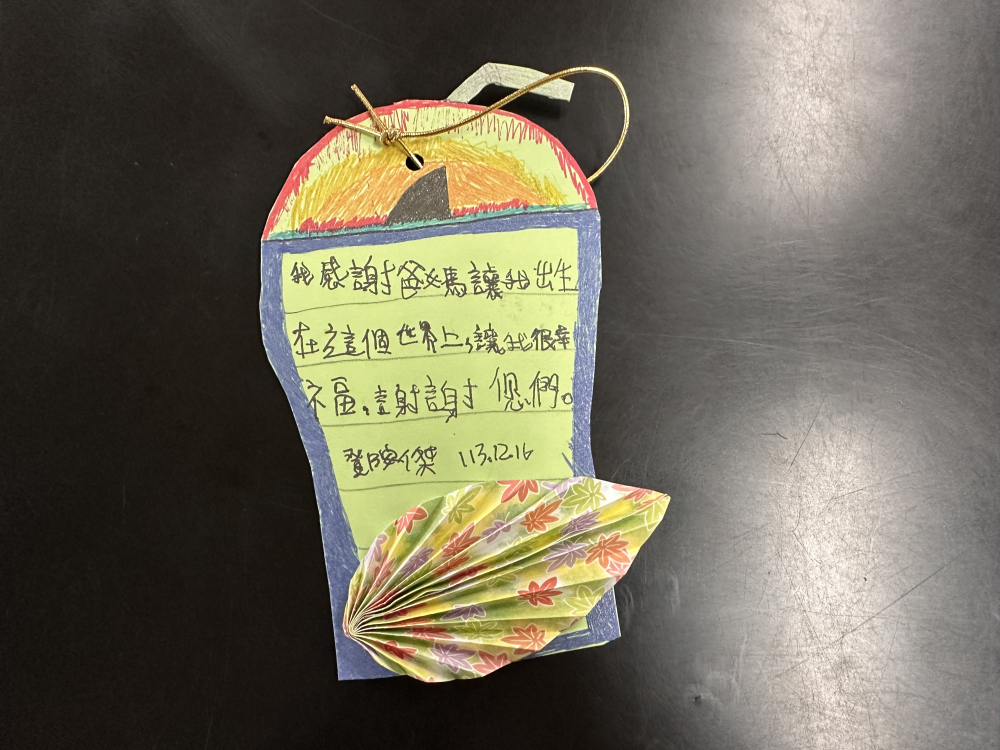 我感謝爸媽讓我出生
在這個世界上,讓我很幸
福。謝謝您們。
傑 113.12.16